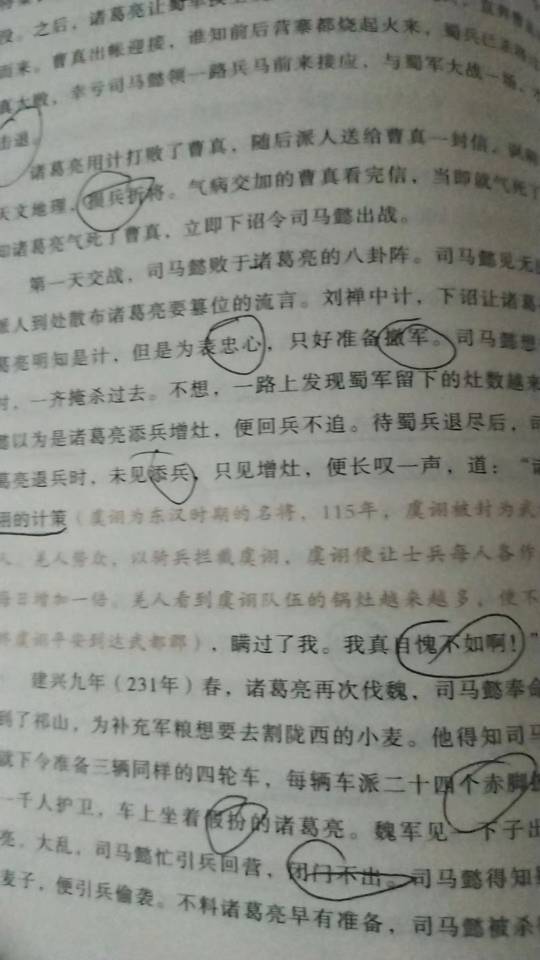 没。之后，诸葛亮让蜀军
而来。曹真出帐迎接，谁知前后营寨都烧起火来，蜀兵已
真大败，幸亏司马懿领一路兵马前来接应，与蜀军大战一场，
击退。
诸葛亮用计打败了曹真，随后派人送给曹真一封信，讽刺
天文地理，损兵折将。气病交加的曹真看完信，当即就气死了
知诸葛亮气死了曹真，立即下诏令司马懿出战。
第一天交战，司马懿败于诸葛亮的八卦阵。司马懿见无
派人到处散布诸葛亮要篡位的流言。刘禅中计，下诏让诸葛
葛亮明知是计，但是为表忠心，只好准备撤军。司马懿想
时，一齐掩杀过去。不想，一路上发现蜀军留下的灶数越来
懿以为是诸葛亮添兵增灶，便回兵不追。待蜀兵退尽后，司
葛亮退兵时，未见添兵，只见增灶，便长叹一声，道：“诸
诩的计策（虞诩为东汉时期的名将，115年，虞诩被封为武
人。羌人势众，以骑兵拦截虞诩，虞诩便让士兵每人各作
每日增加一倍。羌人看到虞诩队伍的锅灶越来越多，便不
终虞诩平安到达武都郡），瞒过了我。我真自愧不如啊！”
建兴九年（231年）春，诸葛亮再次伐魏，司马懿奉命
到了祁山，为补充军粮想要去割陇西的小麦。他得知司马
就下令准备三辆同样的四轮车，每辆车派二十四个赤脚
一千人护卫，车上坐着假扮的诸葛亮。魏军见一下子出
亮，大乱，司马懿忙引兵回营，闭门不出。司马懿得知
麦子，便引兵偷袭。不料诸葛亮早有准备，司马懿被杀